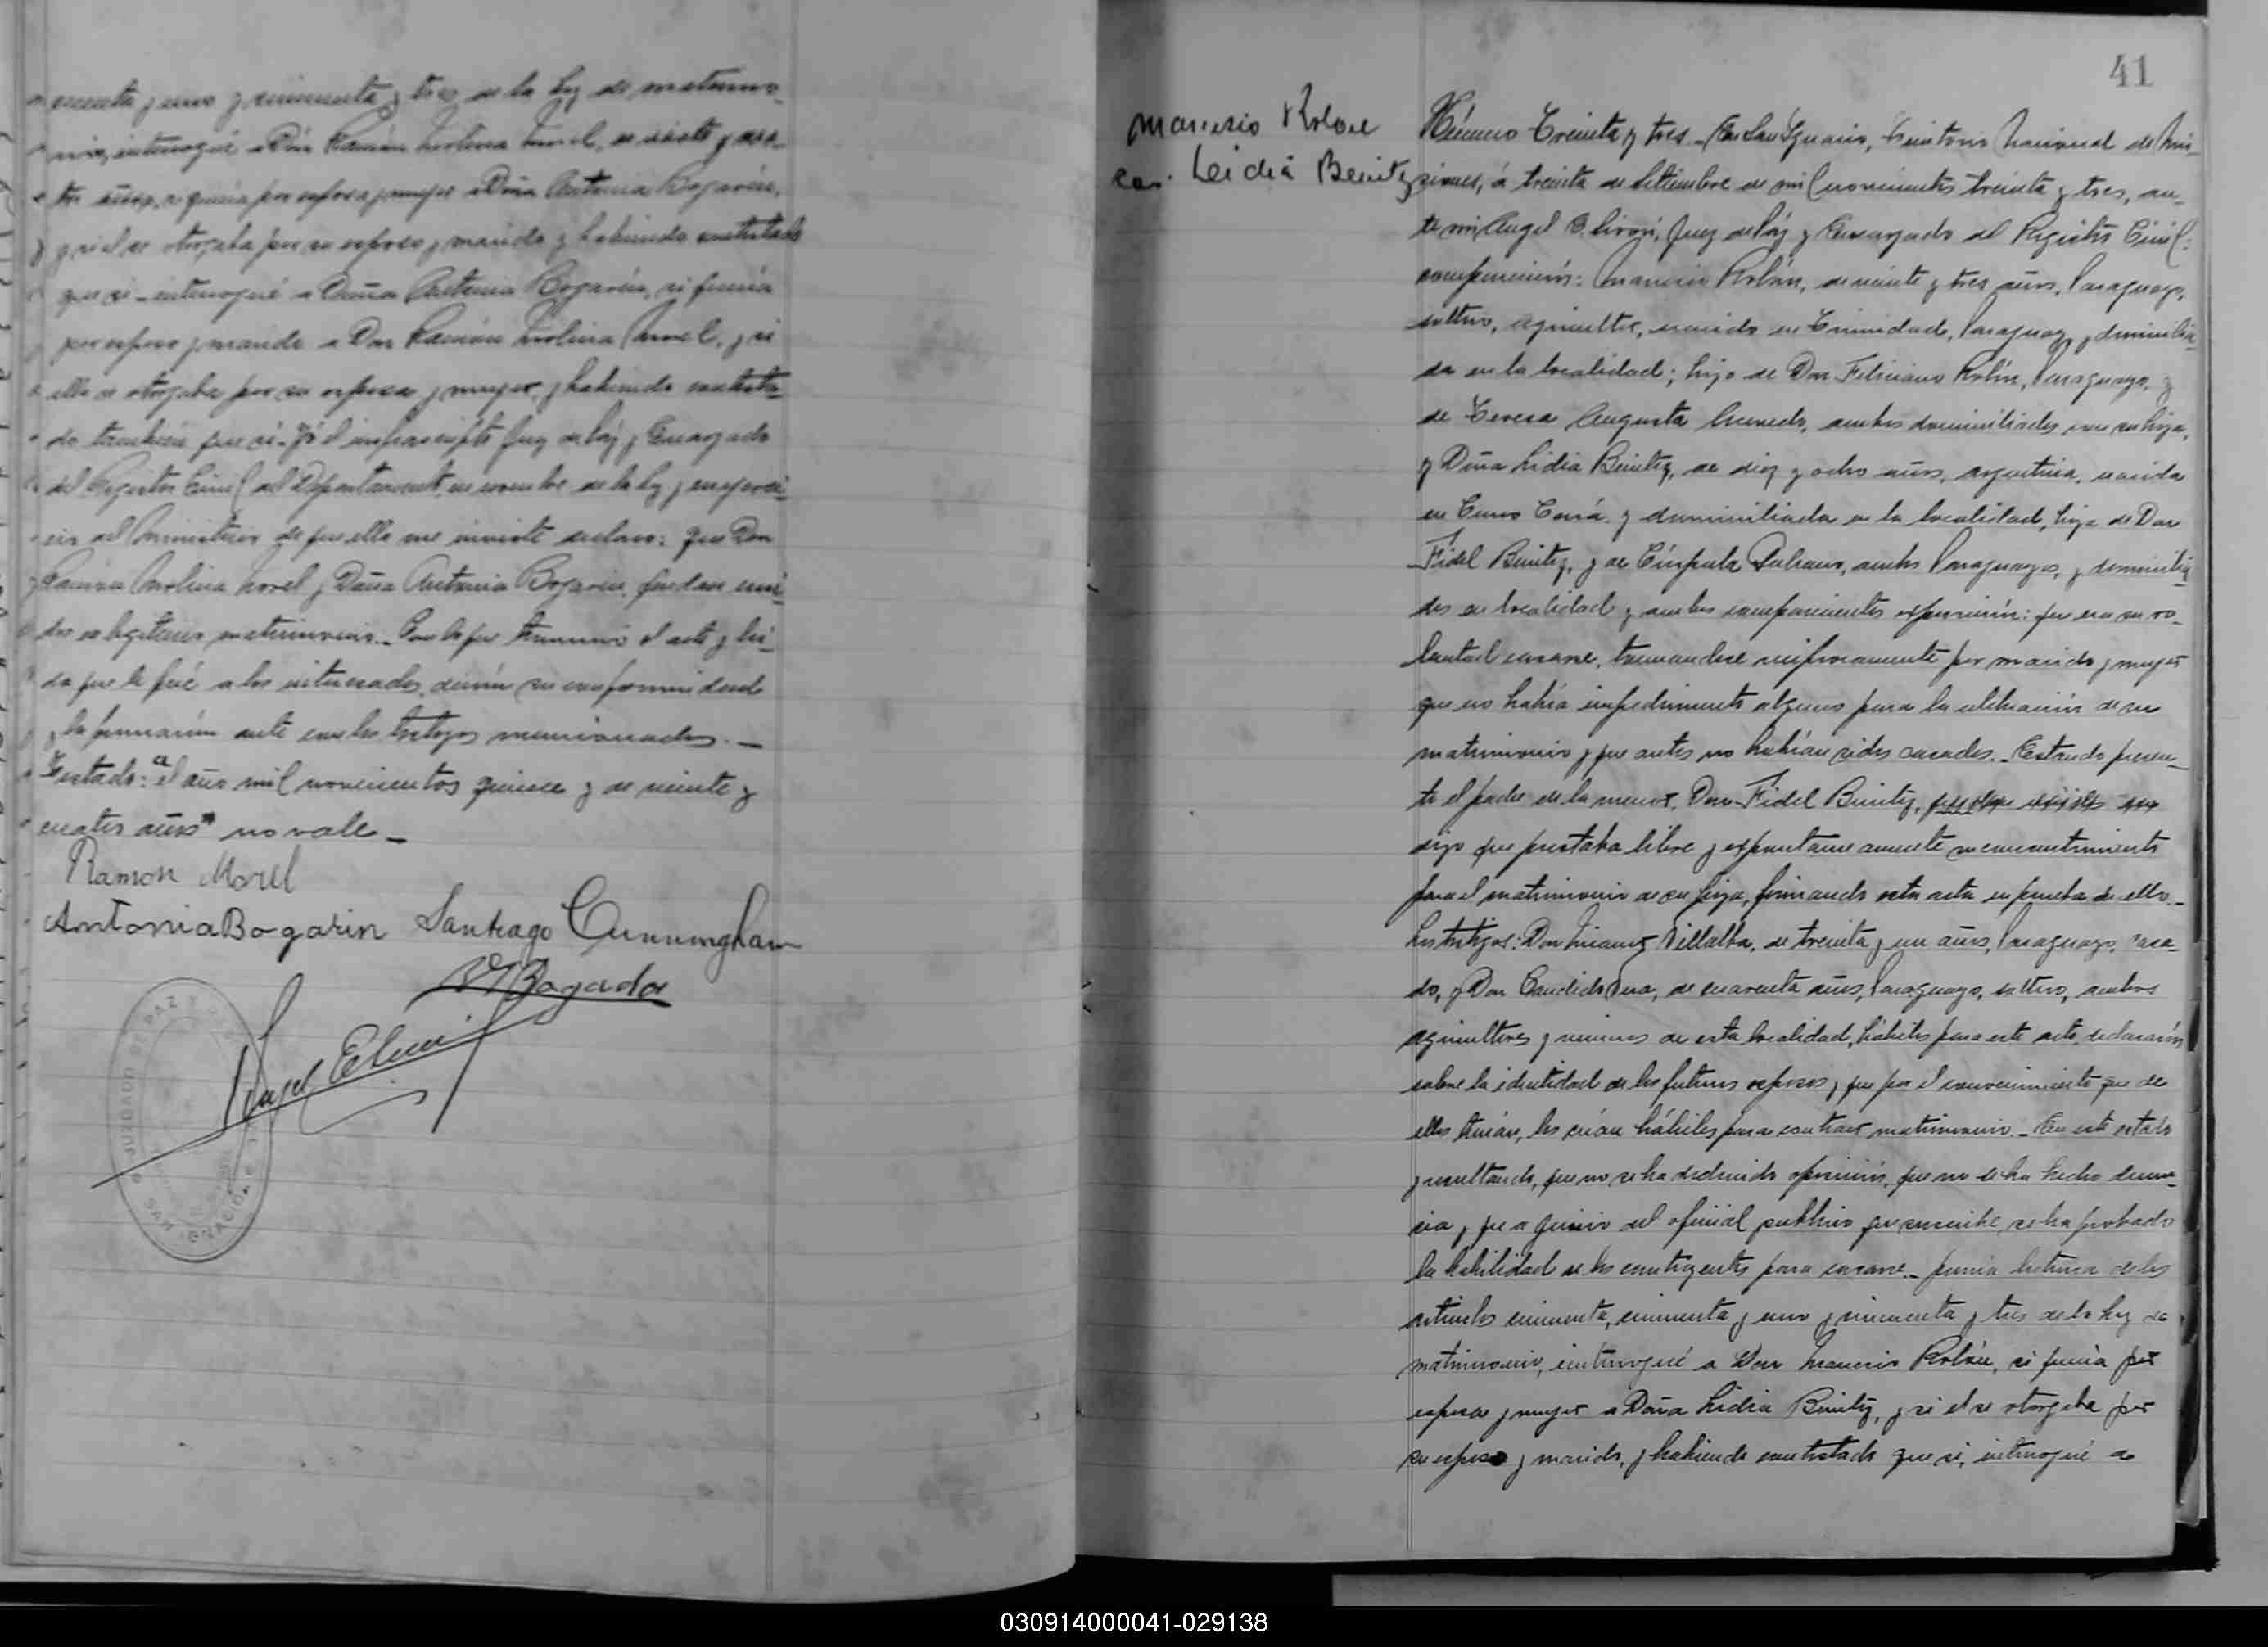 cuenta y uno y cincuenta y tres de la ley de matrimo-
nio, interrogué a Don Ramón Molina Morel, de veinte y cua-
tro años, si quería por esposa y mujer a Doña Antonia Bogarín,
y si el se otorgaba por su esposo y marido y habiendo contestado
que si - interrogué a Doña Antonia Bogarín, si quería
por esposo y marido a Don Ramón Molina Morel, y si
ella se otorgaba por su esposa y mujer, y habiendo contesta-
do también que si. Yo el infrascripto Juez de Paz y Encargado
del Registro Civil del Departamento, en nombre de la ley y en ejerci-
cio del Ministerio de que ella me inviste declaro: que Don
Ramón Molina Morel y Doña Antonia Bogarín, quedan uni-
dos en legítimo matrimonio. Con lo que terminó el acto y leí-
da que le fué a los interesados, dieron su conformidad
y la firmaron ante con los testigos mencionados. —
Testado: el año mil novecientos quince y de veinte y
cuatro años" no vale —
Ramon Morel
Antonia Bogarin Santiago Cunningham
Bogado
Angel
JUZGADO DE PAZ
SAN IGNACIO
41
Mauricio Rolon
con. Leidia Benitez
Número Treinta y tres - En San Ignacio, Territorio Nacional de Mi-
siones, á treinta de Setiembre de mil novecientos treinta y tres, an-
te mi Angel Juez de Paz y Encargado del Registro Civil:
comparecieron: Mauricio Rolón, de veinte y tres años, Paraguayo,
soltero, agricultor, nacido en Trinidad, Paraguay, y domicilia-
do en la localidad; hijo de Don Feliciano Rolón, Paraguayo, y
de Teresa Augusta domiciliados con su hijo,
y Doña Lidia Benitez, de diez y ocho años, argentina, nacida
en Cerro Corá y domiciliada en la localidad, hija de Don
Fidel Benitez, y de ambos Paraguayos, y domicilia-
dos en localidad y ambos comparecientes expusieron: que era su vo-
luntad casarse, tomandose recíprocamente por marido y mujer
que no había impedimento alguno para la celebración de su
matrimonio y que antes no habían sidos casados. - Estando presen-
te el padre de la menor, Don Fidel Benitez,
dijo que prestaba libre y espontaneamente su consentimiento
para el matrimonio de su hija, firmando esta acta en prueba de ello. -
Los testigos: Don Villalba, de treinta y un años, Paraguayo, casa-
do, y Don Candido de cuarenta años, Paraguayo, soltero, ambos
agricultores y vecinos de esta localidad, hábiles para este acto, declararon
sobre la identidad de los futuros esposos y que por el conocimiento que de
ellos tenían, los creían hábiles para contraer matrimonio. - En este estado
y resultando, que no se ha deducido oposición, que no se ha hecho denun-
cia y que a juicio del oficial publico que suscribe, se ha probado
la habilidad de los contrayentes para casarse - previa lectura de los
articulos cincuenta, cincuenta y uno y cincuenta y tres de la ley de
matrimonio, interrogué a Don Mauricio Rolón, si quería por
esposa y mujer a Doña Lidia Benitez, y si el se otorgaba por
su esposo y marido, y habiendo contestado que si, interrogué a
030914000041-029138